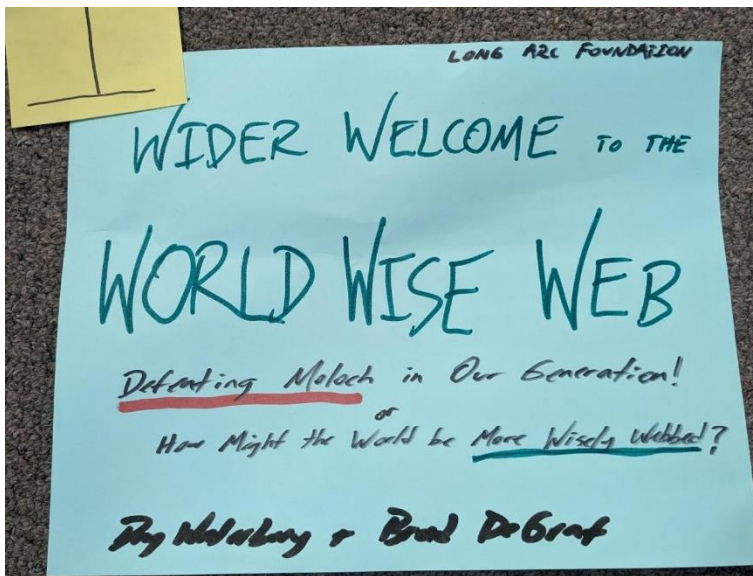 LONG ARC FOUNDATION
WIDER WELCOME TO THE
WORLD WISE WEB
Defeating Moloch in Our Generation!
or
How Might the World be More Wisely Webbed?
+ Brad DeGraf